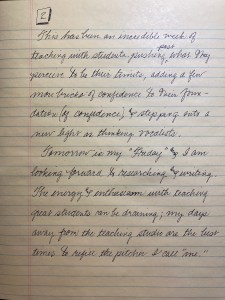 2
This has been an incredible week of
teaching with students pushing past what they
perceive to be their limits, adding a few
more bricks of confidence to their foun-
dation (of confidence) & stepping into a
new light as thinking vocalists.
Tomorrow is my "Friday" & I am
looking forward to researching & writing.
The energy & enthusiasm with teaching
great students can be draining; my days
away from the teaching studio are the best
times to refill the pitcher I call "me."